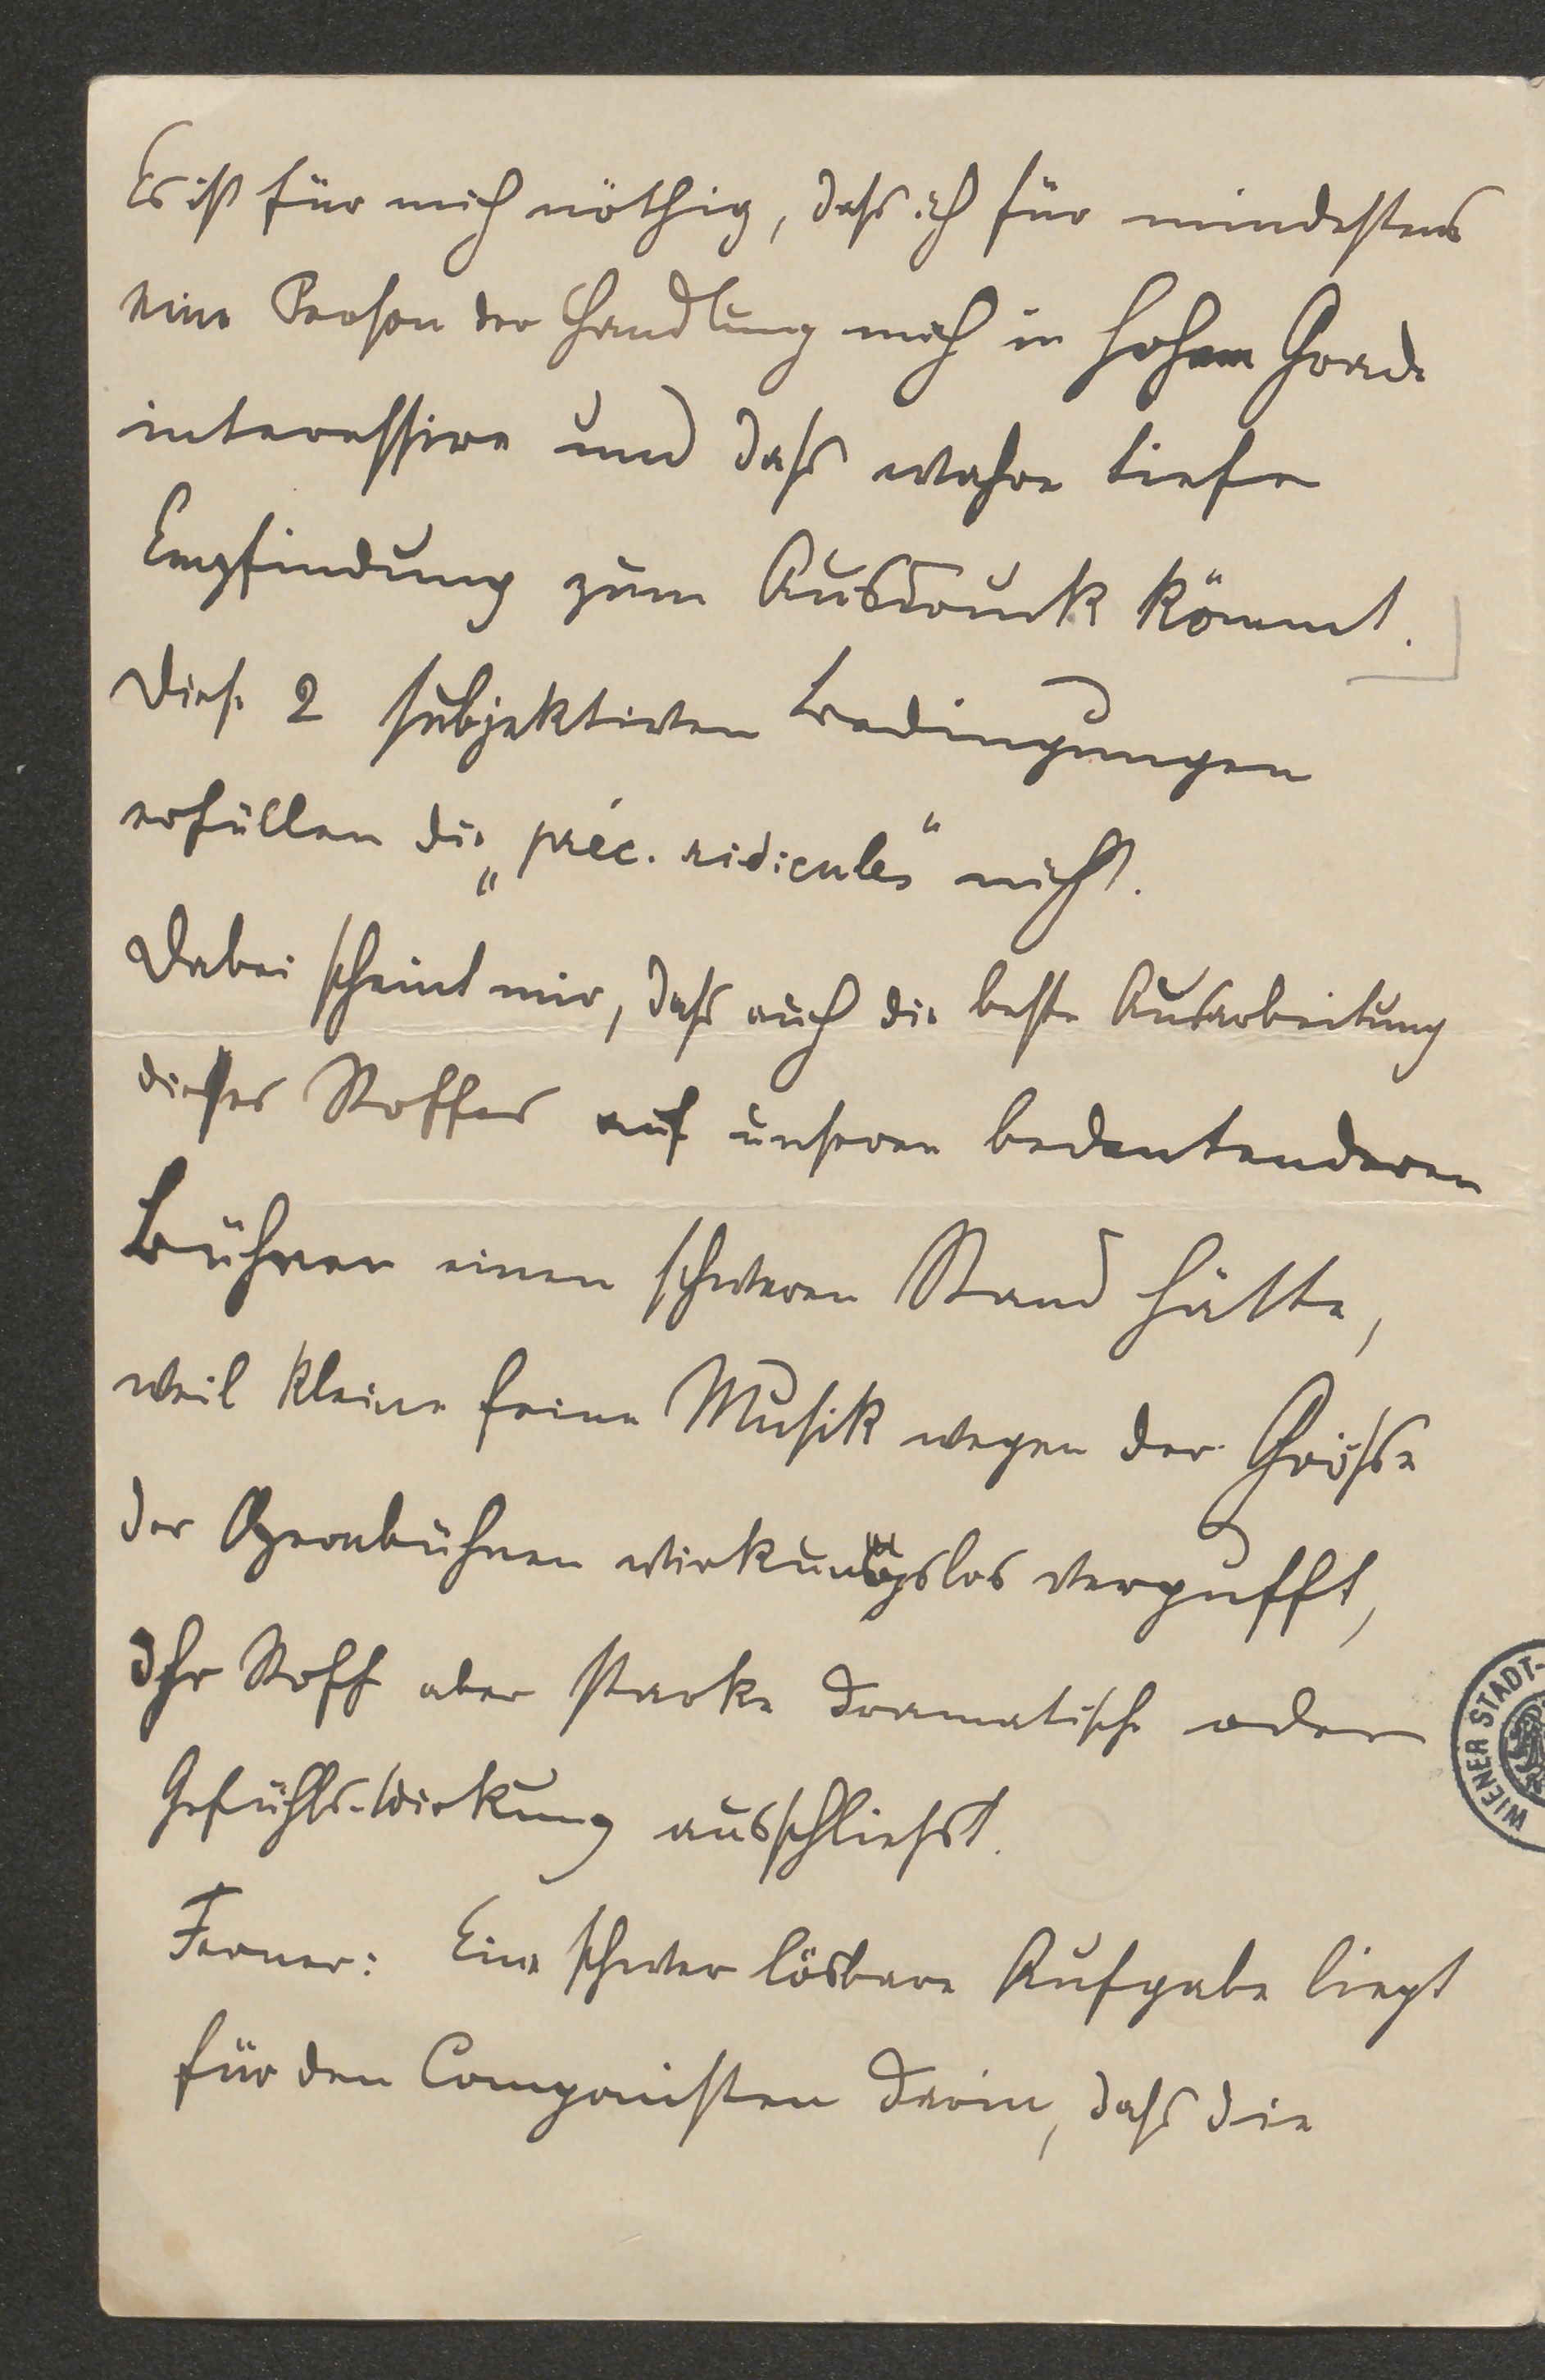 Es ist für mich nöthig, dass ich für mindestens
eine Person der Handlung mich in hohem Grade
interessire und dass wahre tiefe
Empfindung zum Ausdruck kömmt.
Diese 2 subjektiven Bedingungen
erfüllen die „préc. ridicules“ nicht.
Dabei scheint mir, dass auch die beste Ausarbeitung
dieses Stoffes auf unseren bedeutenderen
Bühnen einen schweren Stand hätte,
weil kleine feine Musik wegen der Grösse
der Opernbühnen wirkungslos verpufft,
Ihr Stoff aber starke dramatische oder
Gefühls-Wirkung ausschliesst.
Ferner: Eine schwer lösbare Aufgabe liegt
für den Componisten darin, dass die
WIENER STADT-